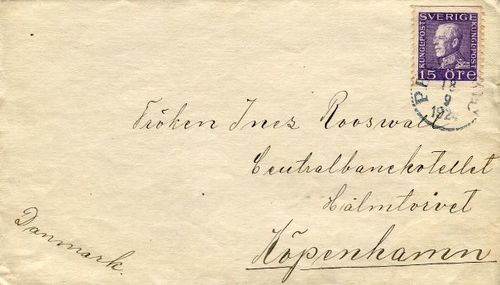 SVERIGE
KUNGLPOST KUNGLPOST
15 ÖRE
18
9
1924
Fröken Inez Rooswall
Centralbanehotellet
Halmtorvet
Köpenhamn
Danmark.